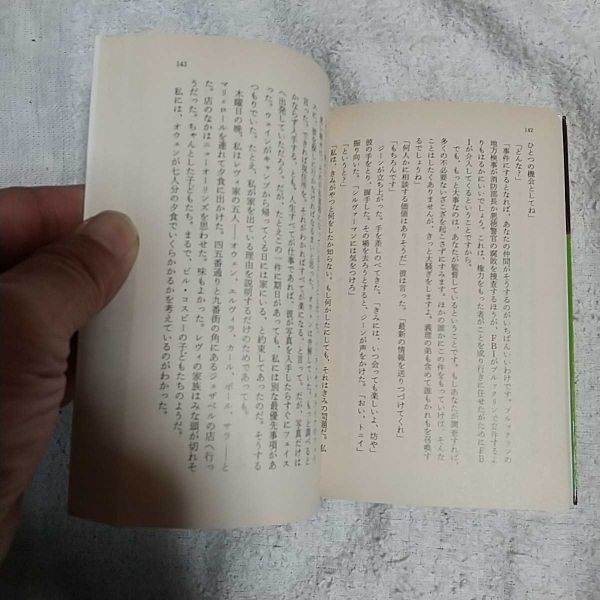 142
ひとつの機会としてね」
「どんな?」
「事件にするとなれば、あなたの仲間がそうするのがいちばんいいわけです。ブルックリンの
地方検事が消防部長か悪徳警官の腐敗を捜査するほうが、FBIがブルックリンで立件するよ
りもはるかにいいでしょう。これは、権力をもった者がことを成り行きに任せたがためにFB
Iが介入してくるということですから。
でも、もっと大事なのは、あなたが監督しているということです。もしあなたが調査すれば、
多くの不必要ないざこざを起こさずにすみます。ほかの誰かにこの件をもっていけば、そんな
ことはしたくありませんが、きっと大騒ぎをしますよ。義理の弟も含めて誰もかれもを召喚す
るでしょうね」
「何人かに相談する価値はありそうだ」彼は言った。「最新の情報を送りつづけてくれ」
「もちろんです」
ジーンが立ち上がった。手を差しのべてきた。「きみには、いつ会っても楽しいよ、坊や」
彼の手をとり、握手した。その場を去ろうとすると、ジーンが声をかけた。「おい、トニイ」
振り向いた。「シルヴァーマンには気をつけろ」
「というと?」
「私は、きみがやつと何をしたか知らない。もし何かしたにしても、それはきみの問題だ。私
143
かならず入手する。とにかく、人生すべてが仕事であれば、彼が写真を入手したらすぐにフェイス
へ出発していただろう。だが、たとえこの一件に期日があっても、私には別な最優先事項があ
った。ウェインがキャンプから帰ってくる日には家にいる、と約束してあったのだ。そうする
つもりでいた。たとえ、私が家を出ている理由を説明するだけのためであっても。
木曜日の晩、私はレヴィ家の五人――オウェン、エルヴィラ、カール、ポール、サラ――と
マリェロールを連れて夕食に出かけた。四五番通りと九番街の角にあるジェザベルの店へ行っ
た。店のなかはニューオーリンズを思わせた。味もよかった。レヴィの家族はみな頭が切れそ
うだった。ちゃんとした子どもたち。まるで、ビル・コスビーの子どもたちのようだ。
私には、オウェンが七人分の夕食でいくらかかるかを考えているのがわかった。